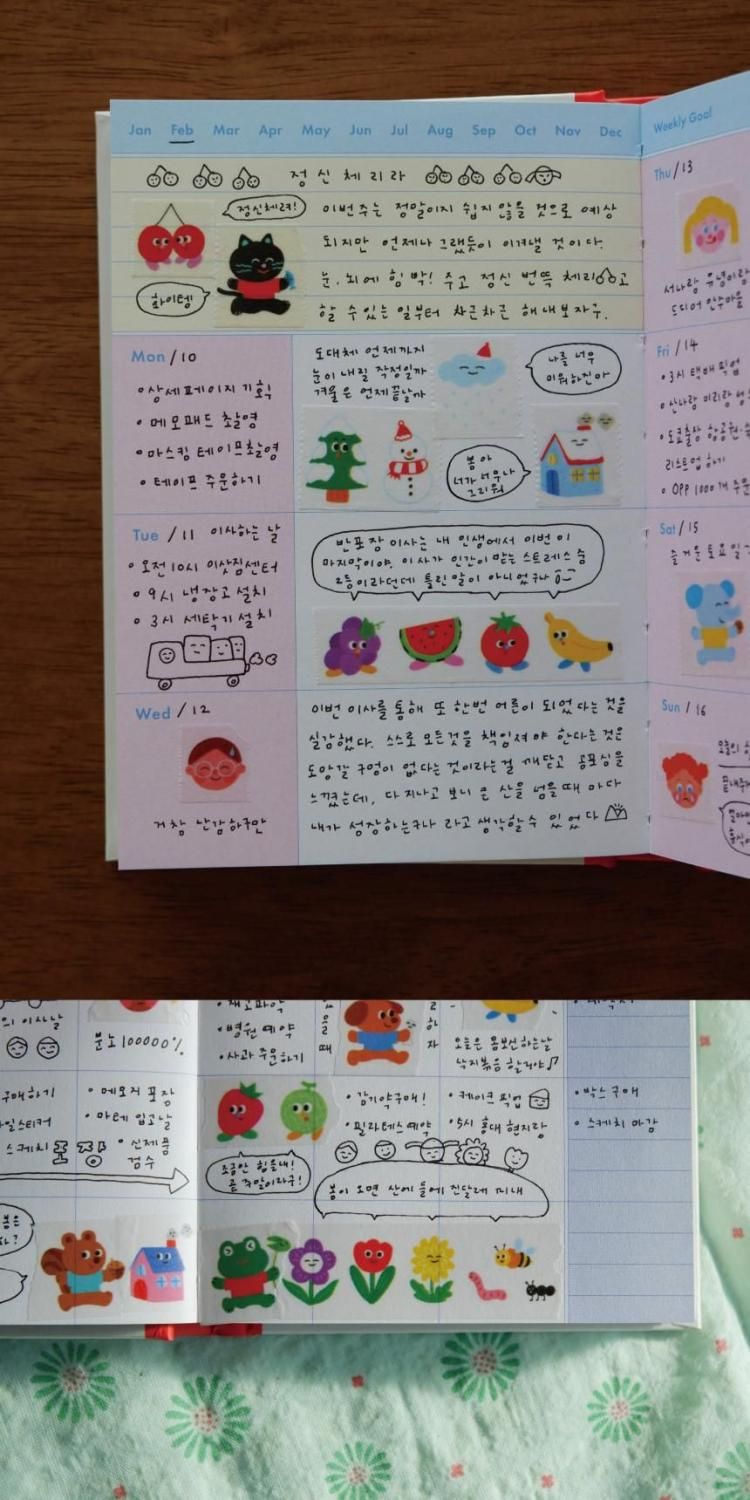 Jan Feb Mar Apr May Jun Jul Aug Sep Oct Nov Dec
정신체리라
정신체려!
이번주는 정말이지 쉽지 않을 것으로 예상
되지만 언제나 그랬듯이 이겨낼 것이다.
화이팅!
눈, 뇌에 힘 빡! 주고 정신 번뜩 체리고
할 수 있는 일부터 차근차근 해내보자구.
Mon / 10
• 상세페이지 기획
• 메모패드 촬영
• 마스킹 테이프촬영
• 테이프 주문하기
도대체 언제까지
눈이 내릴 작정일까
겨울은 언제끝날까
나를 너무
미워하진마
봄아
너가 너무나
그리워
Tue / 11 이사하는 날
• 오전 10시 이삿짐센터
• 9시 냉장고 설치
• 3시 세탁기 설치
반포장 이사는 내 인생에서 이번이
마지막이야. 이사가 인간이 받는 스트레스 중
2등이라던데 틀린말이 아니었구나
Wed / 12
거참 난감하구만
이번 이사를 통해 또 한번 어른이 되었다는 것을
실감했다. 스스로 모든것을 책임져야 한다는 것은
도망갈 구멍이 없다는 것이라는걸 깨닫고 공포심을
느꼈는데, 다 지나고 보니 큰 산을 넘을 때 마다
내가 성장하는구나 라고 생각할수 있었다
Weekly Goal
Thu / 13
서나랑
드디어
Fri / 14
• 3시 택배 픽업
리스트업 하기
• OPP 1000개
Sat / 15
즐거운 토요일
Sun / 16
이사날
분노 100000%
• 재고파악
• 병원 예약
• 사과 주문하기
때
하
자
오늘은 몸보신하는날
낙지볶음 할거야
구매하기
스케치
• 메모지 포장
• 마테 입고날
• 신제품
검수
조금만 힘을내!
곧 주말이라구!
• 감기약구매!
• 필라테스예약
• 케이크 픽업
• 5시 홍대 현지랑
• 박스 구매
• 스케치 마감
봄이 오면 산에 들에 진달래 피네